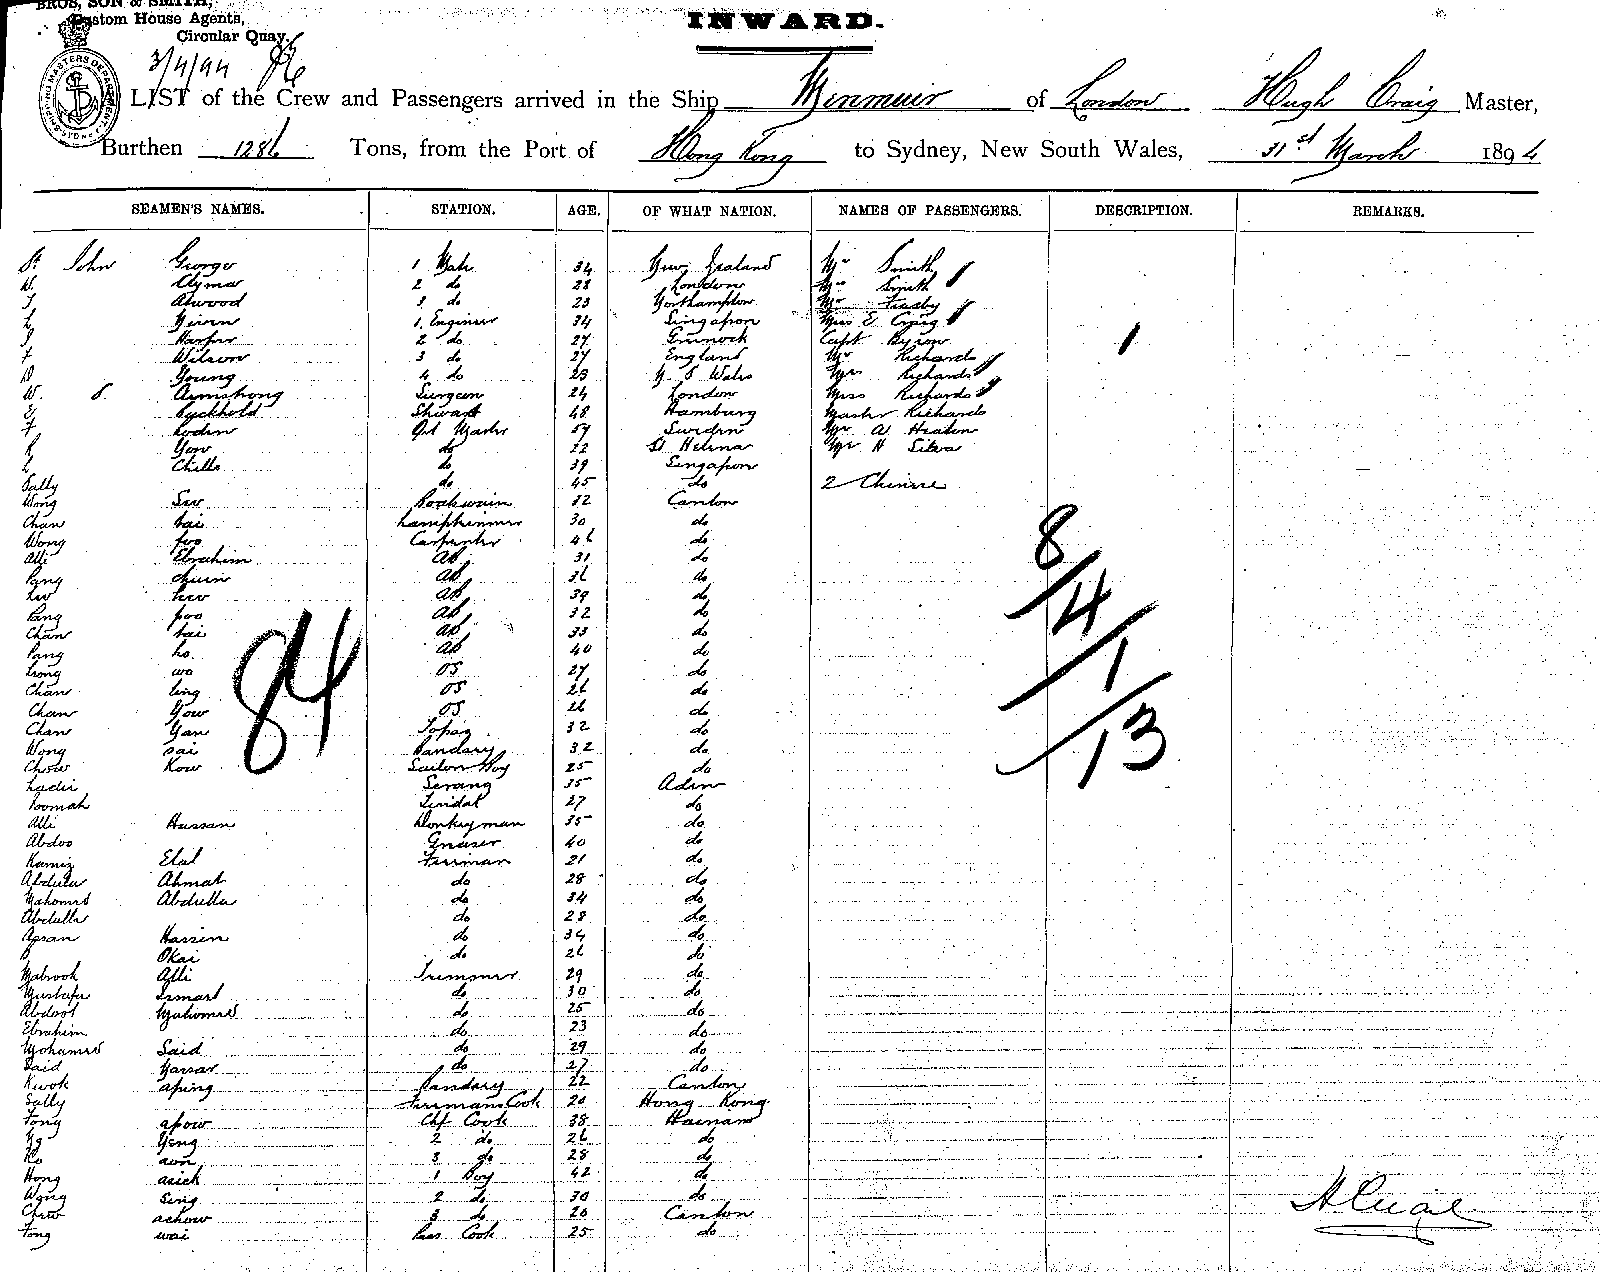 BROS, SON & SMITH,
Custom House Agents,
Circular Quay.
INWARD.
3/4/94
SHIPPING MASTERS DEPARTMENT
LIST of the Crew and Passengers arrived in the Ship Menmuir of London Hugh Craig Master,
Burthen 1286 Tons, from the Port of Hong Kong to Sydney, New South Wales, 31st March 1894
SEAMEN'S NAMES. STATION. AGE. OF WHAT NATION. NAMES OF PASSENGERS. DESCRIPTION. REMARKS.
St John George 1 Mate 34 New Zealand Mr Smith
W. Clymar 2 do 28 London Mrs Smith
Atwood 3 do 23 Northampton Mr
Niven 1. Engineer 34 Singapore Miss E Craig
Harper 2 do 27 Greenock Capt Byron
Wilson 3 do 27 England Mr Richards
Young 4 do 23 N S Wales Mrs Richards
W. S. Armstrong Surgeon 24 London Miss Richards
Steward 48 Hamburg Master Richards
F Qrt Master 57 Sweden Mr W Heaton
do 22 St Helena Mr H Silva
Chills do 39 Singapore
Sally do 45 do 2 Chinese
Wong Sew Boatswain 32 Canton
Chan tai Lamptrimmer 30 do
Wong foo Carpenter 46 do
Alli Ebrahim AB 31 do
Pang chuin AB 36 do
Lew hew AB 39 do
Pang poo AB 32 do
Chan tai AB 33 do
Pang ho AB 40 do
Leong wo OS 27 do
Chan ling OS 26 do
Chan Yow OS 26 do
Chan Yan Topaz 32 do
Wong sai Pandary 32 do
Chow Kow Sailors Boy 25 do
Ladii Serang 35 Aden
Toomah Tindal 27 do
Alli Hassan Donkeyman 35 do
Abdoo Greaser 40 do
Kamiz Elal Fireman 21 do
Abdula Ahmat do 28 do
Mahomed Abdulla do 34 do
Abdulla do 28 do
Assan Hassen do 34 do
Okai do 26 do
Mabrook Alli Trimmer 29 do
Mustafa Ismael do 30 do
Abdool Mahomed do 25 do
Ebrahim do 23 do
Mohamed Said do 29 do
Said Nassar do 27 do
Kwok aping Pandary 22 Canton
Sally Firemans Cook 20 Hong Kong
Fong apow Chf Cook 38 Hainam
Ng Yeng 2 do 26 do
Ho aon 3 do 28 do
Hong asick 1 Boy 42 do
Wong Sing 2 do 30 do
Chew achow 3 do 20 Canton
Fong wai Pass Cook 25 do
84
8/4/1/13
H Craig